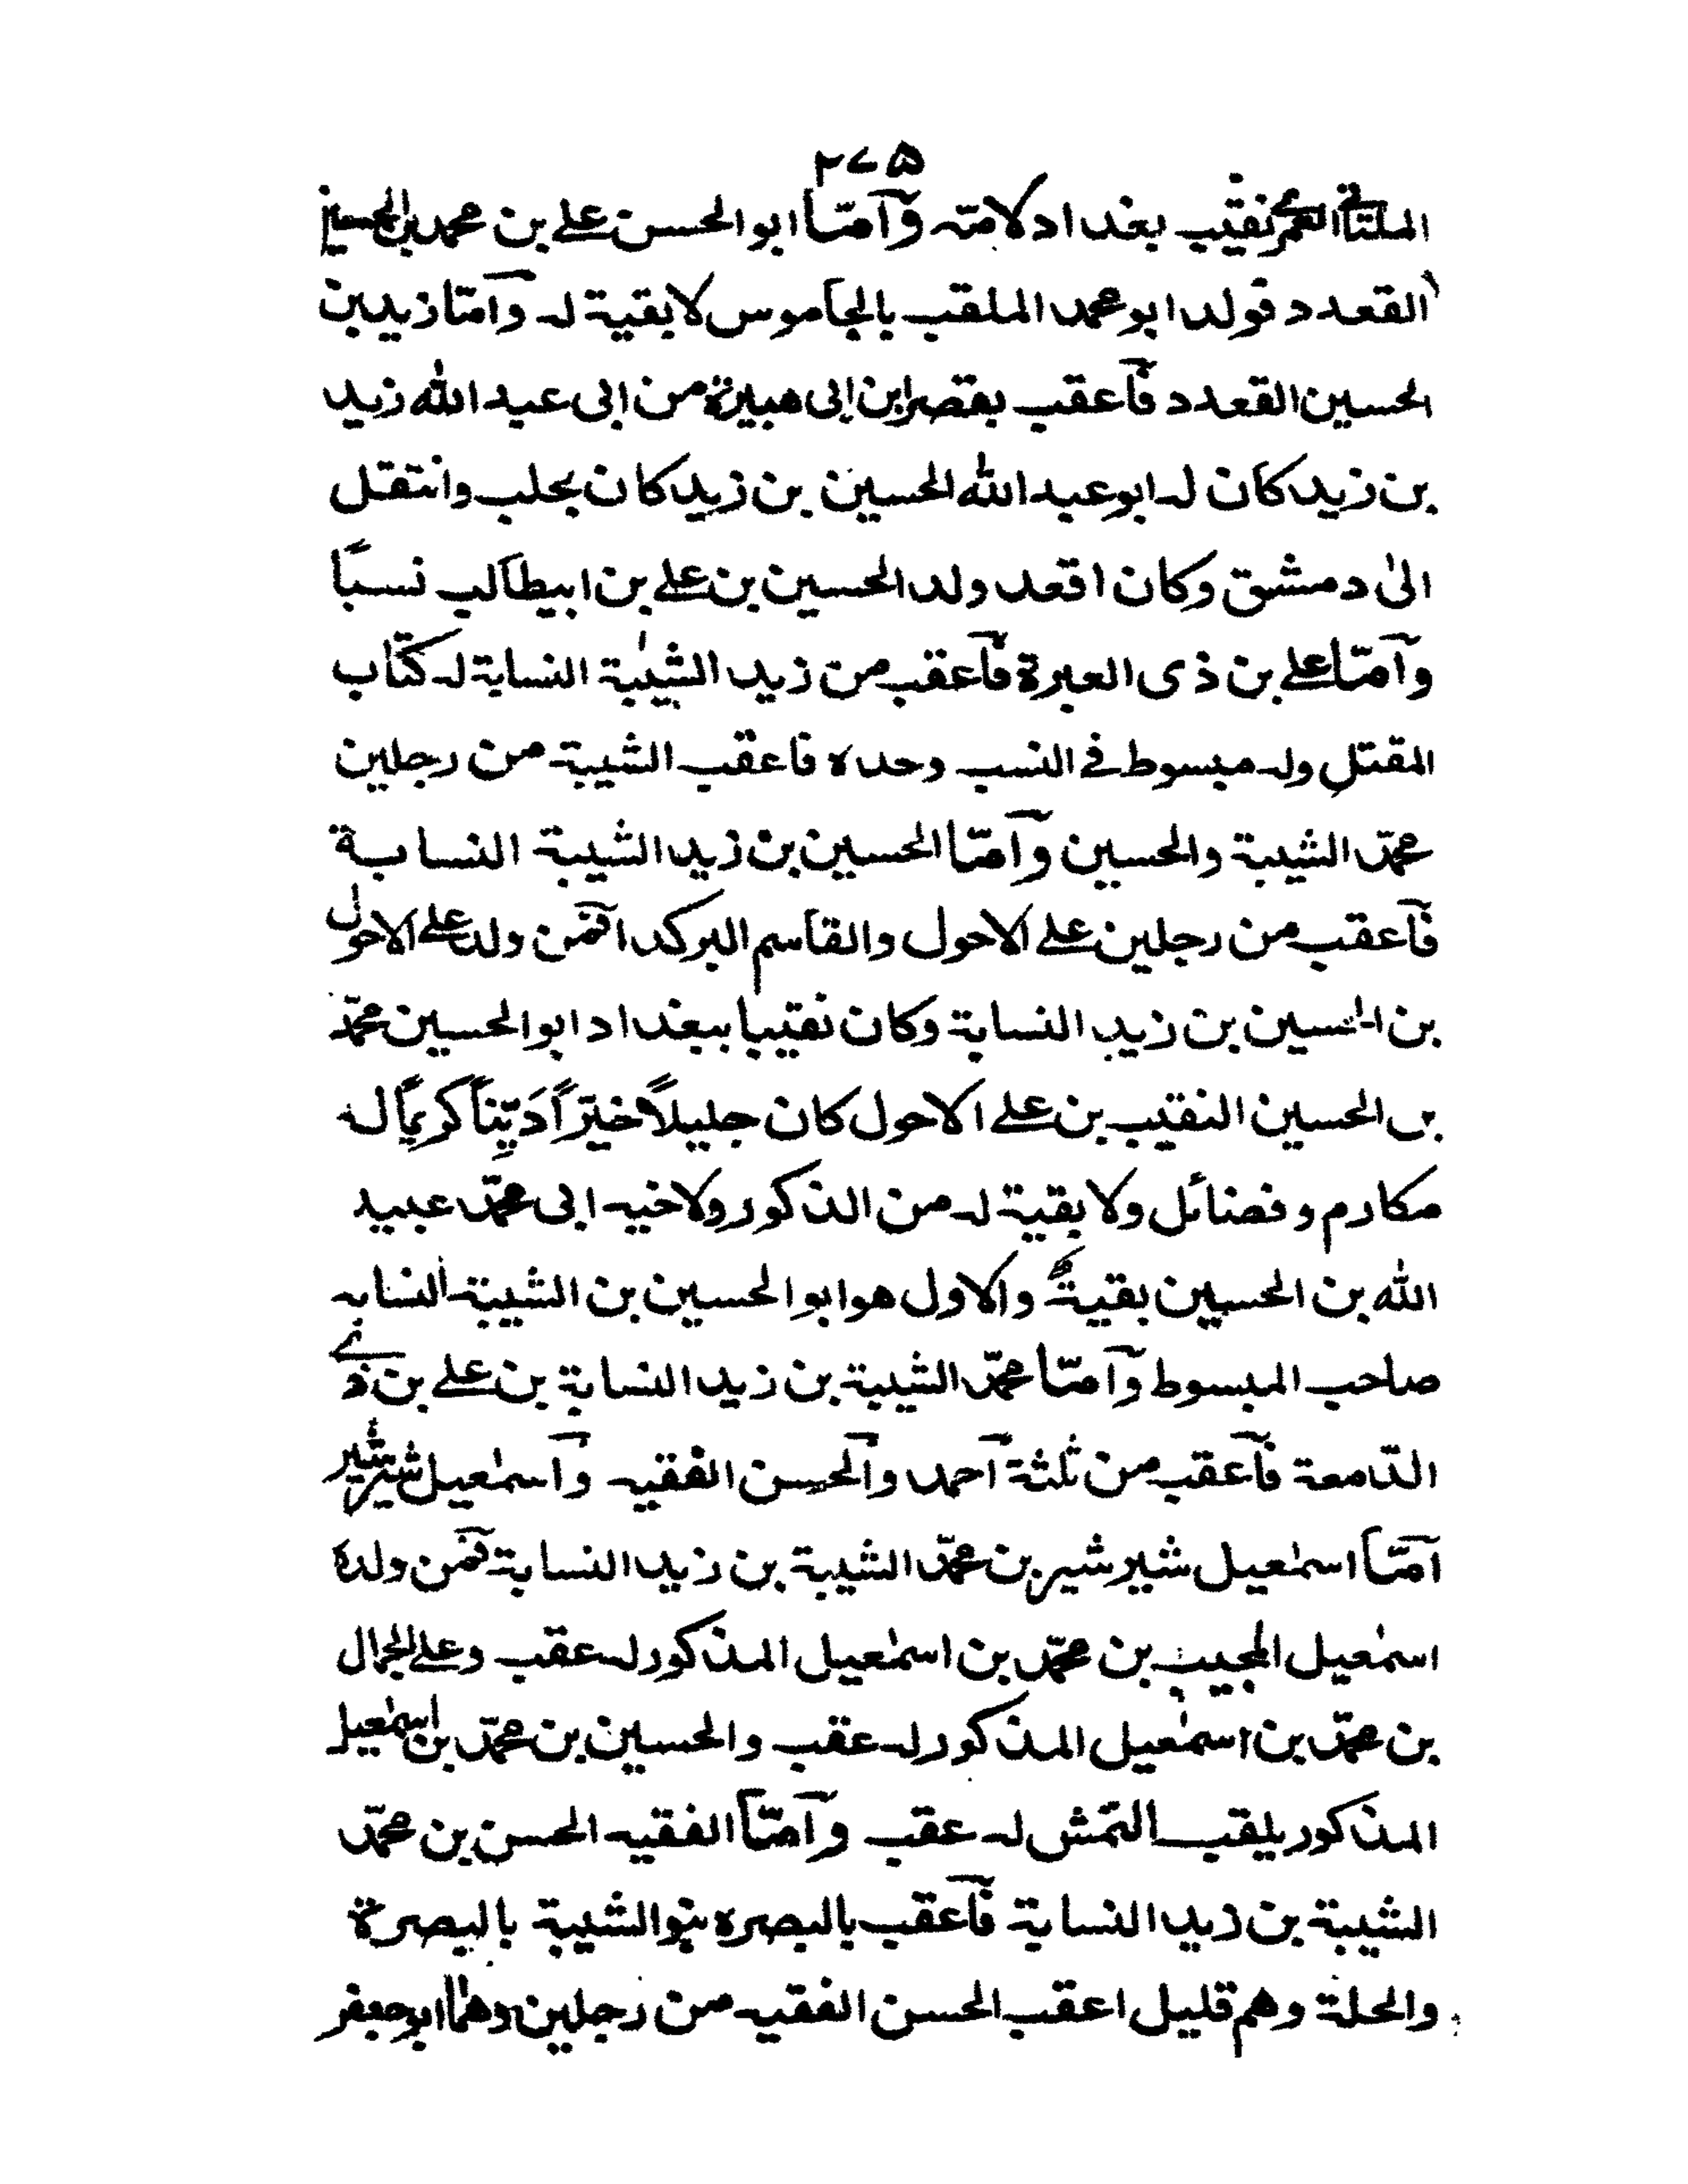 ٢٧٥
الملتانى العمرى نقيب بغداد لامته وآمّا ابو الحسن على بن محمد بن الحسين
القعدد فولد ابو محمد الملقب بالجاموس لا بقية له وآمّا زيد بن
الحسين القعدد فآعقب بقصر ابن ابى هبيرة من ابى عبد الله زيد
بن زيد كان له ابو عبد الله الحسين بن زيد كان بحلب وانتقل
الىٰ دمشق وكان اقعد ولد الحسين بن على بن ابيطالب نسباً
وآمّا على بن ذى العبرة فآعقب من زيد الشيبة النسابة له كتاب
المقتل وله مبسوط فى النسب وحده فاعقب الشيبة من رجلين
محمّد الشيبة والحسين وآمّا الحسين بن زيد الشيبة النسابة
فآعقب من رجلين على الاحول والقاسم البركدا فمن ولد على الاحول
بن الحسين بن زيد النسابة وكان نقيبا ببغداد ابو الحسين محمّد
بن الحسين النقيب بن على الاحول كان جليلاً خيّراً دَيِّناً كريماً له
مكارم وفضائل ولا بقية له من الذكور ولاخيه ابى محمّد عبيد
الله بن الحسين بقيةٌ والاول هو ابو الحسين بن الشيبة النسابه
صاحب المبسوط وآمّا محمّد الشيبة بن زيد النسابة بن على بن ذى
الدّامعة فآعقب من ثلثة آحمد وآلحسن الفقيه وآسمٰعيل شيرشير
آمّا اسمٰعيل شيرشير بن محمّد الشيبة بن زيد النسابة فمن ولده
اسمٰعيل المجيب بن محمّد بن اسمٰعيل المذكور له عقب وعلى الجمال
بن محمّد بن اسمٰعيل المذكور له عقب والحسين بن محمّد بن اسمٰعيل
المذكور يلقب التمش له عقب وآمّا الفقيه الحسن بن محمّد
الشيبة بن زيد النسابة فآعقب بالبصره بنو الشيبة بالبصرة
والحلة وهم قليل اعقب الحسن الفقيه من رجلين وهما ابو جعفر